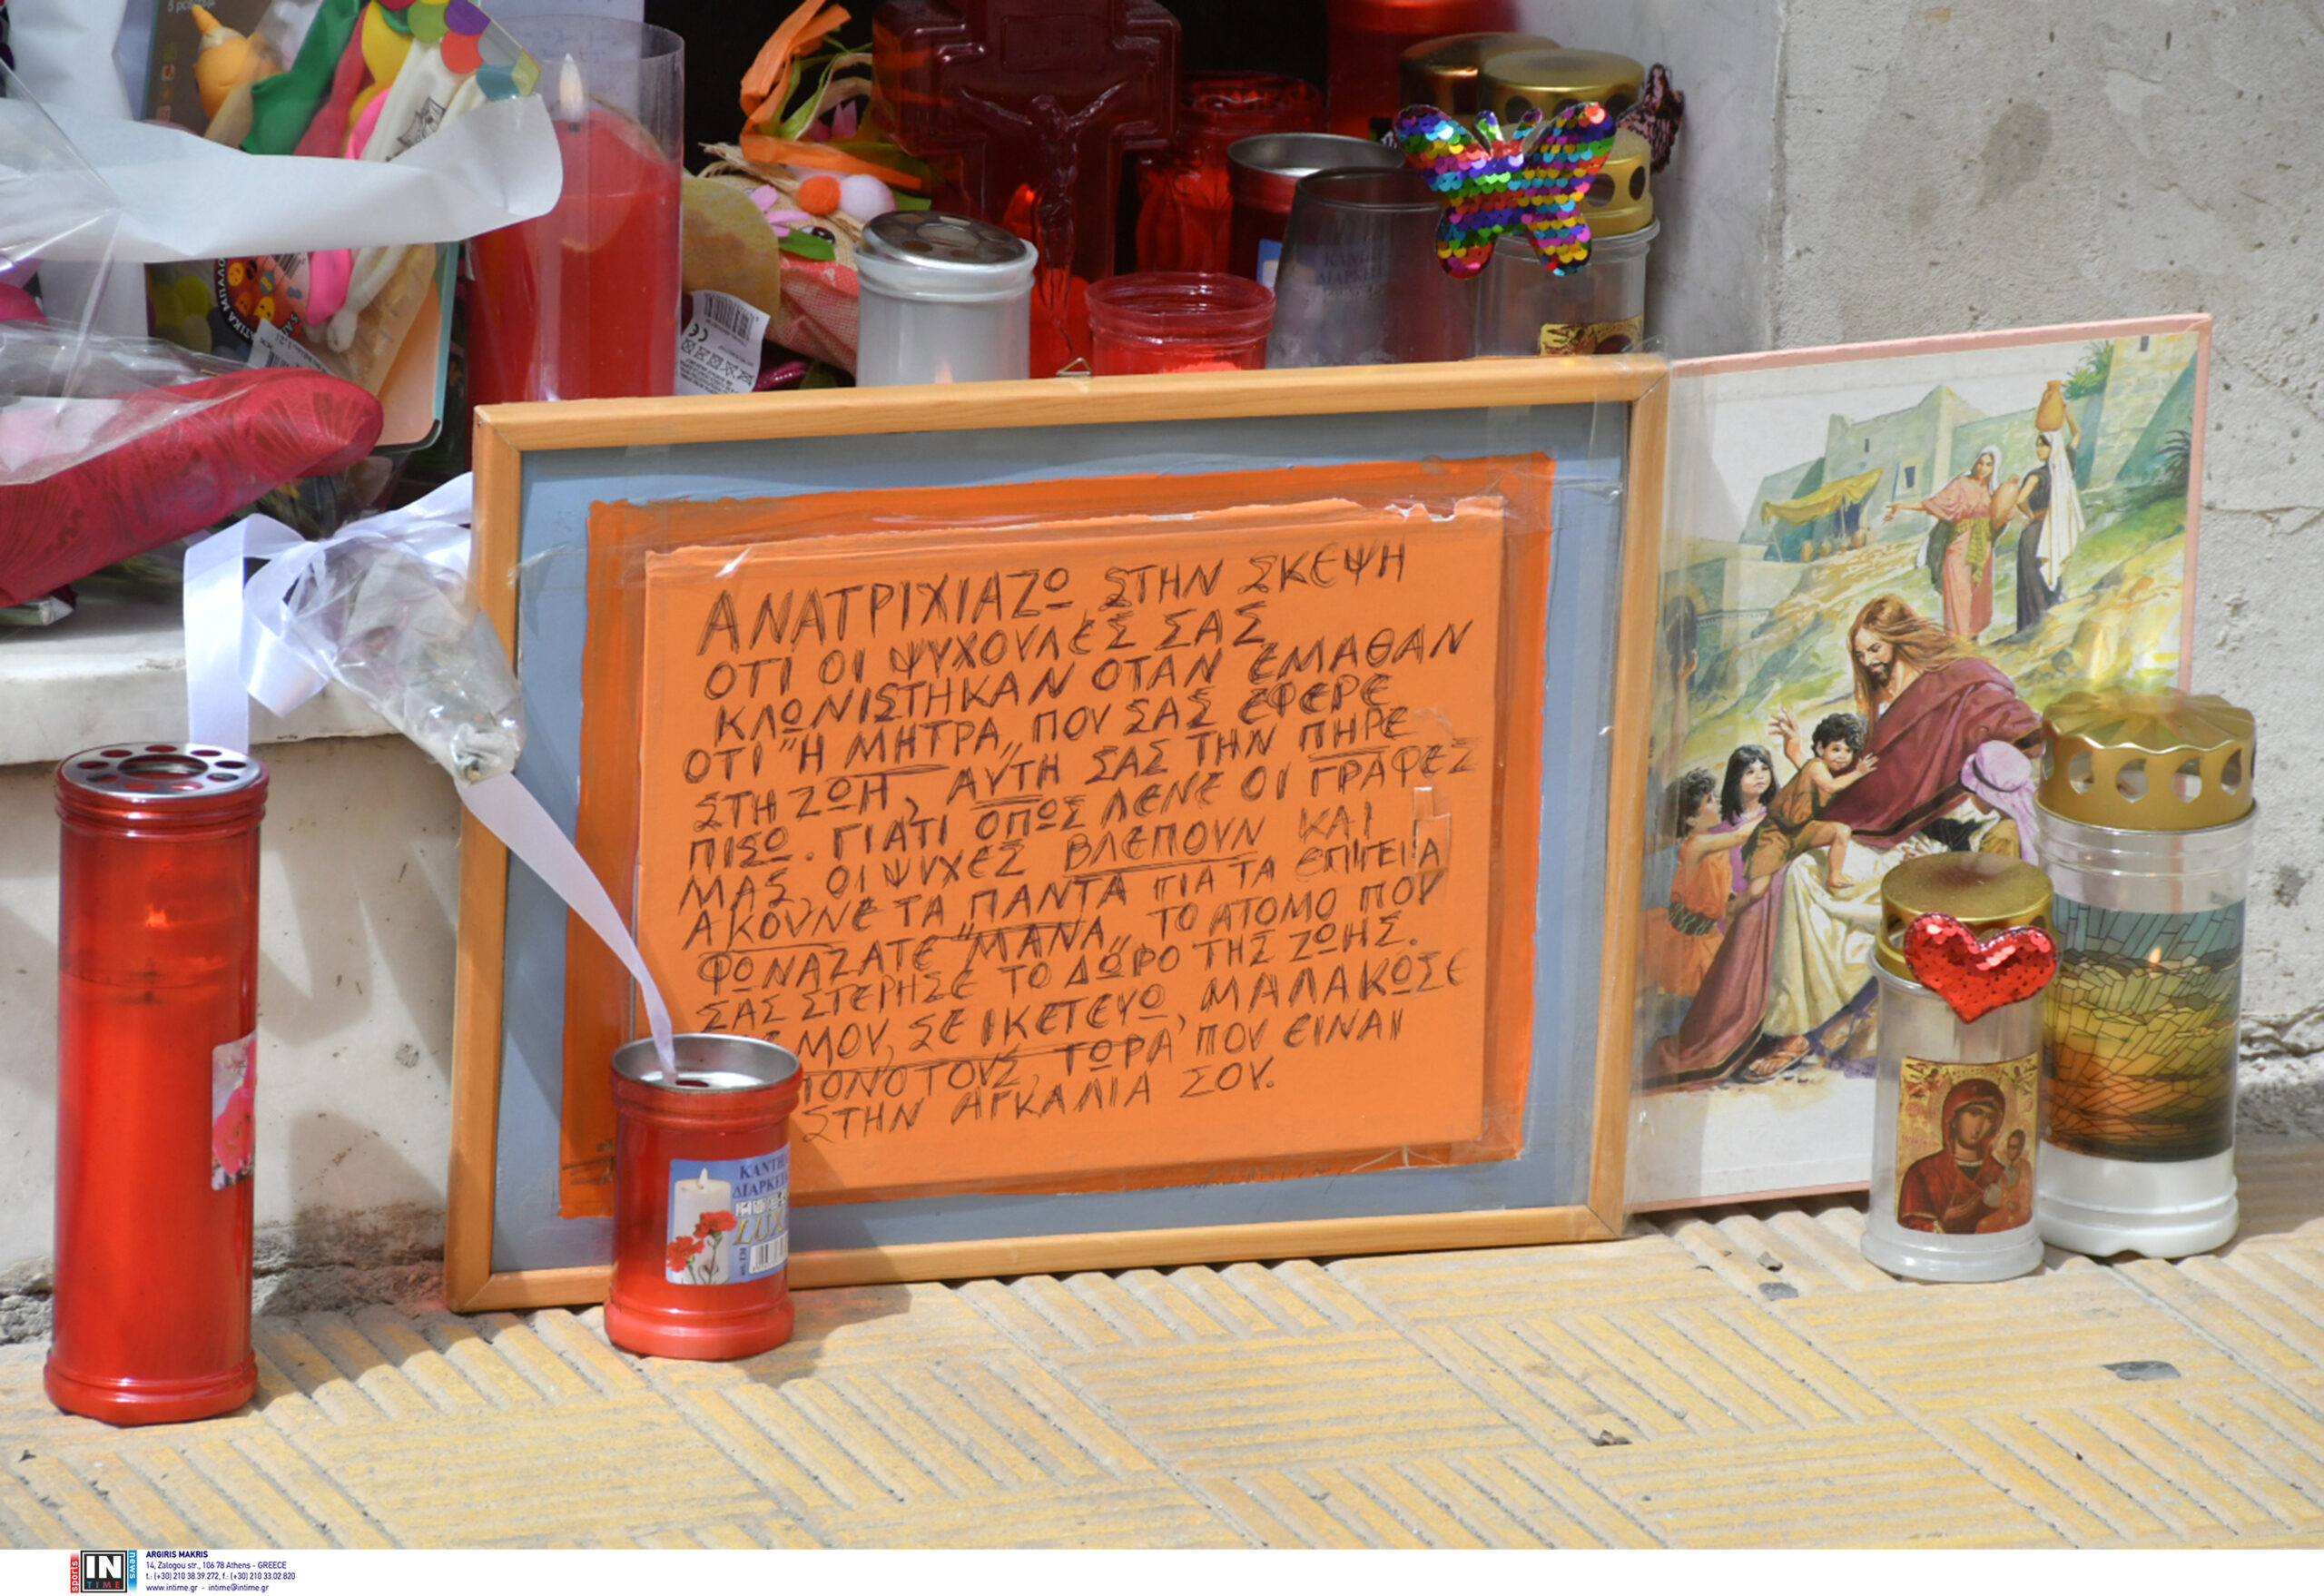 5 pcs
ΚΑΝΤΗ
ΔΙΑΡΚΕΙ
ΑΝΑΤΡΙΧΙΑΖΩ ΣΤΗΝ ΣΚΕΨΗ
ΟΤΙ ΟΙ ΨΥΧΟΥΛΕΣ ΣΑΣ
ΚΛΩΝΙΣΤΗΚΑΝ ΟΤΑΝ ΕΜΑΘΑΝ
ΟΤΙ "Η ΜΗΤΡΑ„ ΠΟΥ ΣΑΣ ΕΦΕΡΕ
ΣΤΗ ΖΩΗ, ΑΥΤΗ ΣΑΣ ΤΗΝ ΠΗΡΕ
ΠΙΣΩ. ΓΙΑΤΙ ΟΠΩΣ ΛΕΝΕ ΟΙ ΓΡΑΦΕΣ
ΜΑΣ, ΟΙ ΨΥΧΕΣ ΒΛΕΠΟΥΝ ΚΑΙ
ΑΚΟΥΝΕ ΤΑ ΠΑΝΤΑ ΓΙΑ ΤΑ ΕΠΙΓΕΙΑ
ΦΩΝΑΖΑΤΕ "ΜΑΝΑ„ ΤΟ ΑΤΟΜΟ ΠΟΥ
ΣΑΣ ΣΤΕΡΗΣΕ ΤΟ ΔΩΡΟ ΤΗΣ ΖΩΗΣ.
ΜΟΥ, ΣΕ ΙΚΕΤΕΥΩ, ΜΑΛΑΚΩΣΕ
ΠΟΝΟ ΤΟΥΣ, ΤΩΡΑ ΠΟΥ ΕΙΝΑΙ
ΣΤΗΝ ΑΓΚΑΛΙΑ ΣΟΥ.
ΚΑΝΤΗ
ΔΙΑΡΚΕΙ
LUX
IN
TIME
sports
news
ARGIRIS MAKRIS
14, Zalogou str., 106 78 Athens - GREECE
t.: (+30) 210 38.39.272, f.: (+30) 210 33.02.820
www.intime.gr - intime@intime.gr